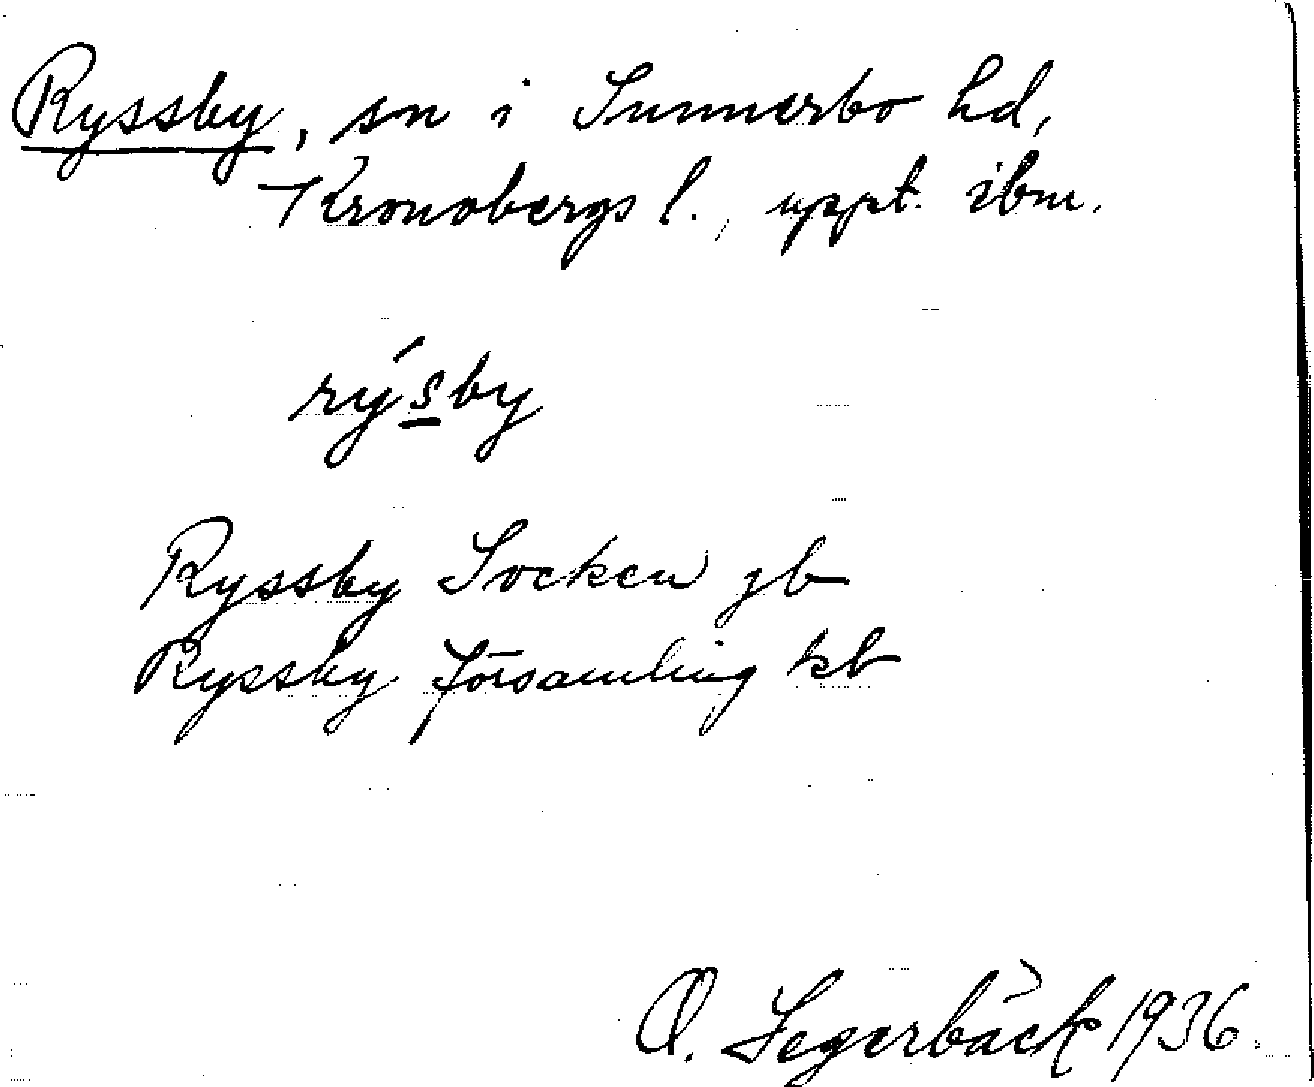 Ryssby, sn i Sunnerbo hd,
Kronobergs l., uppt. ibm.
rýsby
Ryssby Socken jb
Ryssby församling kb
O. Segerbäck 1936.